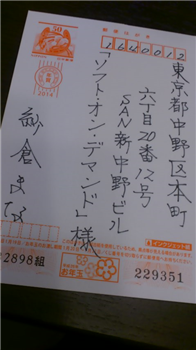 郵便はがき
1640012
東京都中野区本町
六丁目20番12号
SAN新中野ビル
「ソフト・オン・デマンド」様
紗倉まな
50
2014
お年玉
2898組
229351